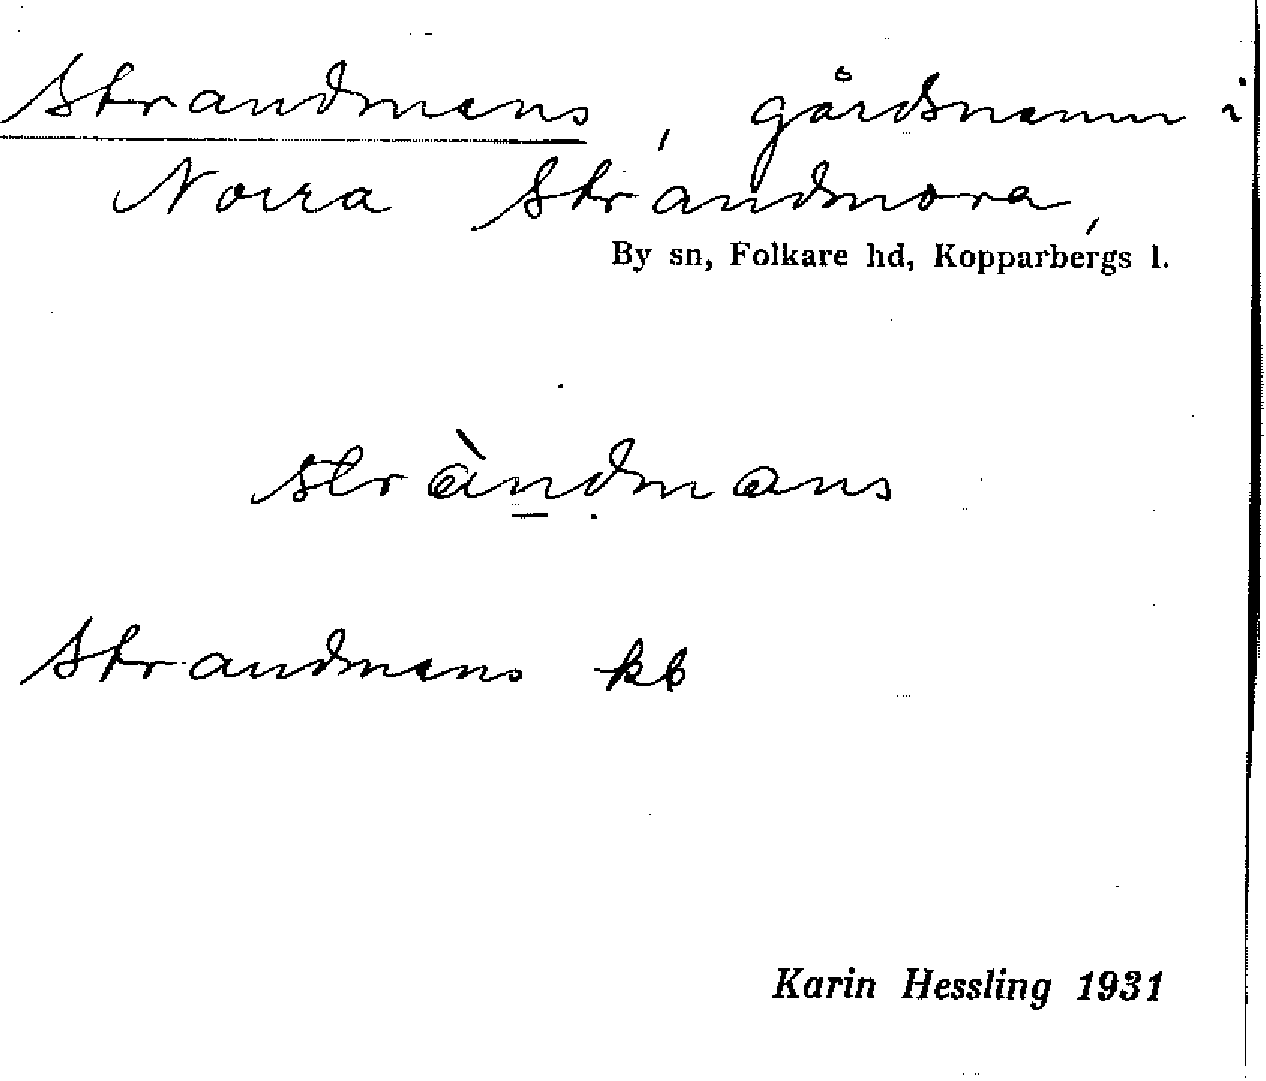 Strandmans, gårdsnamn i
Norra Strandmora,
By sn, Folkare hd, Kopparbergs l.
stràndmans
Strandmans kb
Karin Hessling 1931